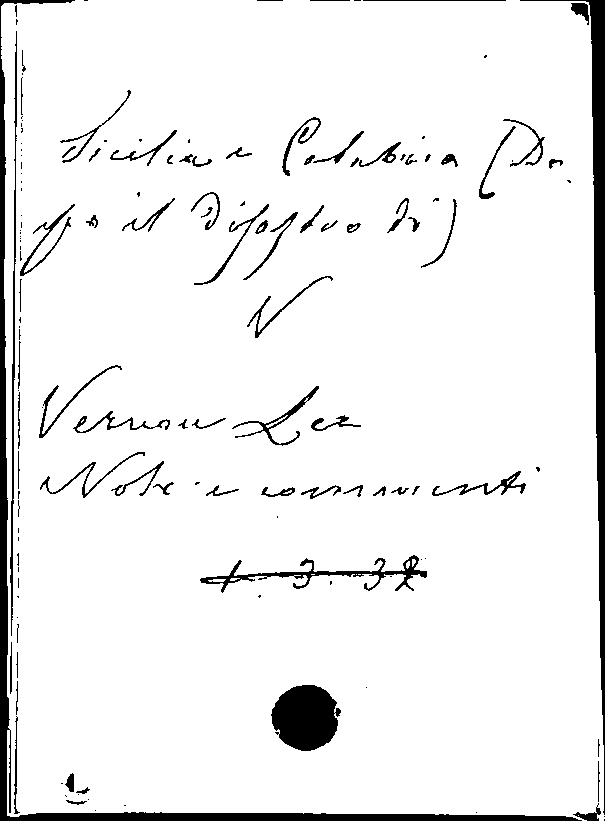 Sicilia e Calabria (Do
po il Disastro di)
V
Vernon Lee
Note e commenti
1. 3. 32